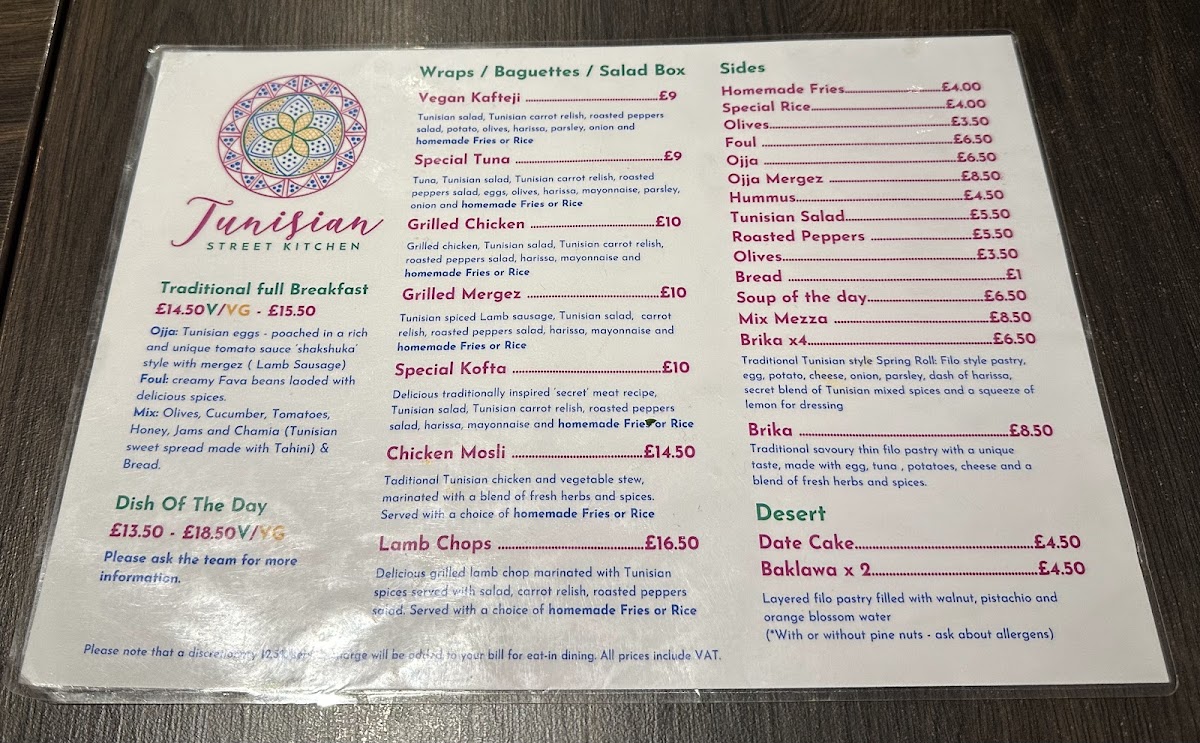 Tunisian
STREET KITCHEN
Traditional full Breakfast
£14.50V/VG - £15.50
Ojja: Tunisian eggs - poached in a rich
and unique tomato sauce 'shakshuka'
style with mergez ( Lamb Sausage)
Foul: creamy Fava beans laoded with
delicious spices.
Mix: Olives, Cucumber, Tomatoes,
Honey, Jams and Chamia (Tunisian
sweet spread made with Tahini) &
Bread.
Dish Of The Day
£13.50 - £18.50V/VG
Please ask the team for more
information.
Wraps / Baguettes / Salad Box
Vegan Kafteji ........................ £9
Tunisian salad, Tunisian carrot relish, roasted peppers
salad, potato, olives, harissa, parsley, onion and
homemade Fries or Rice
Special Tuna ........................ £9
Tuna, Tunisian salad, Tunisian carrot relish, roasted
peppers salad, eggs, olives, harissa, mayonnaise, parsley,
onion and homemade Fries or Rice
Grilled Chicken ........................ £10
Grilled chicken, Tunisian salad, Tunisian carrot relish,
roasted peppers salad, harissa, mayonnaise and
homemade Fries or Rice
Grilled Mergez ........................ £10
Tunisian spiced Lamb sausage, Tunisian salad, carrot
relish, roasted peppers salad, harissa, mayonnaise and
homemade Fries or Rice
Special Kofta ........................ £10
Delicious traditionally inspired 'secret' meat recipe,
Tunisian salad, Tunisian carrot relish, roasted peppers
salad, harissa, mayonnaise and homemade Fries or Rice
Chicken Mosli ........................ £14.50
Taditional Tunisian chicken and vegetable stew,
marinated with a blend of fresh herbs and spices.
Served with a choice of homemade Fries or Rice
Lamb Chops ........................ £16.50
Delicious grilled lamb chop marinated with Tunisian
spices served with salad, carrot relish, roasted peppers
salad. Served with a choice of homemade Fries or Rice
Sides
Homemade Fries........................ £4.00
Special Rice........................ £4.00
Olives........................ £3.50
Foul ........................ £6.50
Ojja ........................ £6.50
Ojja Mergez ........................ £8.50
Hummus........................ £4.50
Tunisian Salad........................ £5.50
Roasted Peppers ........................ £5.50
Olives........................ £3.50
Bread ........................ £1
Soup of the day........................ £6.50
Mix Mezza ........................ £8.50
Brika x4........................ £6.50
Traditional Tunisian style Spring Roll: Filo style pastry,
egg, potato, cheese, onion, parsley, dash of harissa,
secret blend of Tunisian mixed spices and a squeeze of
lemon for dressing
Brika ........................ £8.50
Traditional savoury thin filo pastry with a unique
taste, made with egg, tuna , potatoes, cheese and a
blend of fresh herbs and spices.
Desert
Date Cake........................ £4.50
Baklawa x 2........................ £4.50
Layered filo pastry filled with walnut, pistachio and
orange blossom water
(*With or without pine nuts - ask about allergens)
Please note that a discretionary 12.5% will be added to your bill for eat-in dining. All prices include VAT.